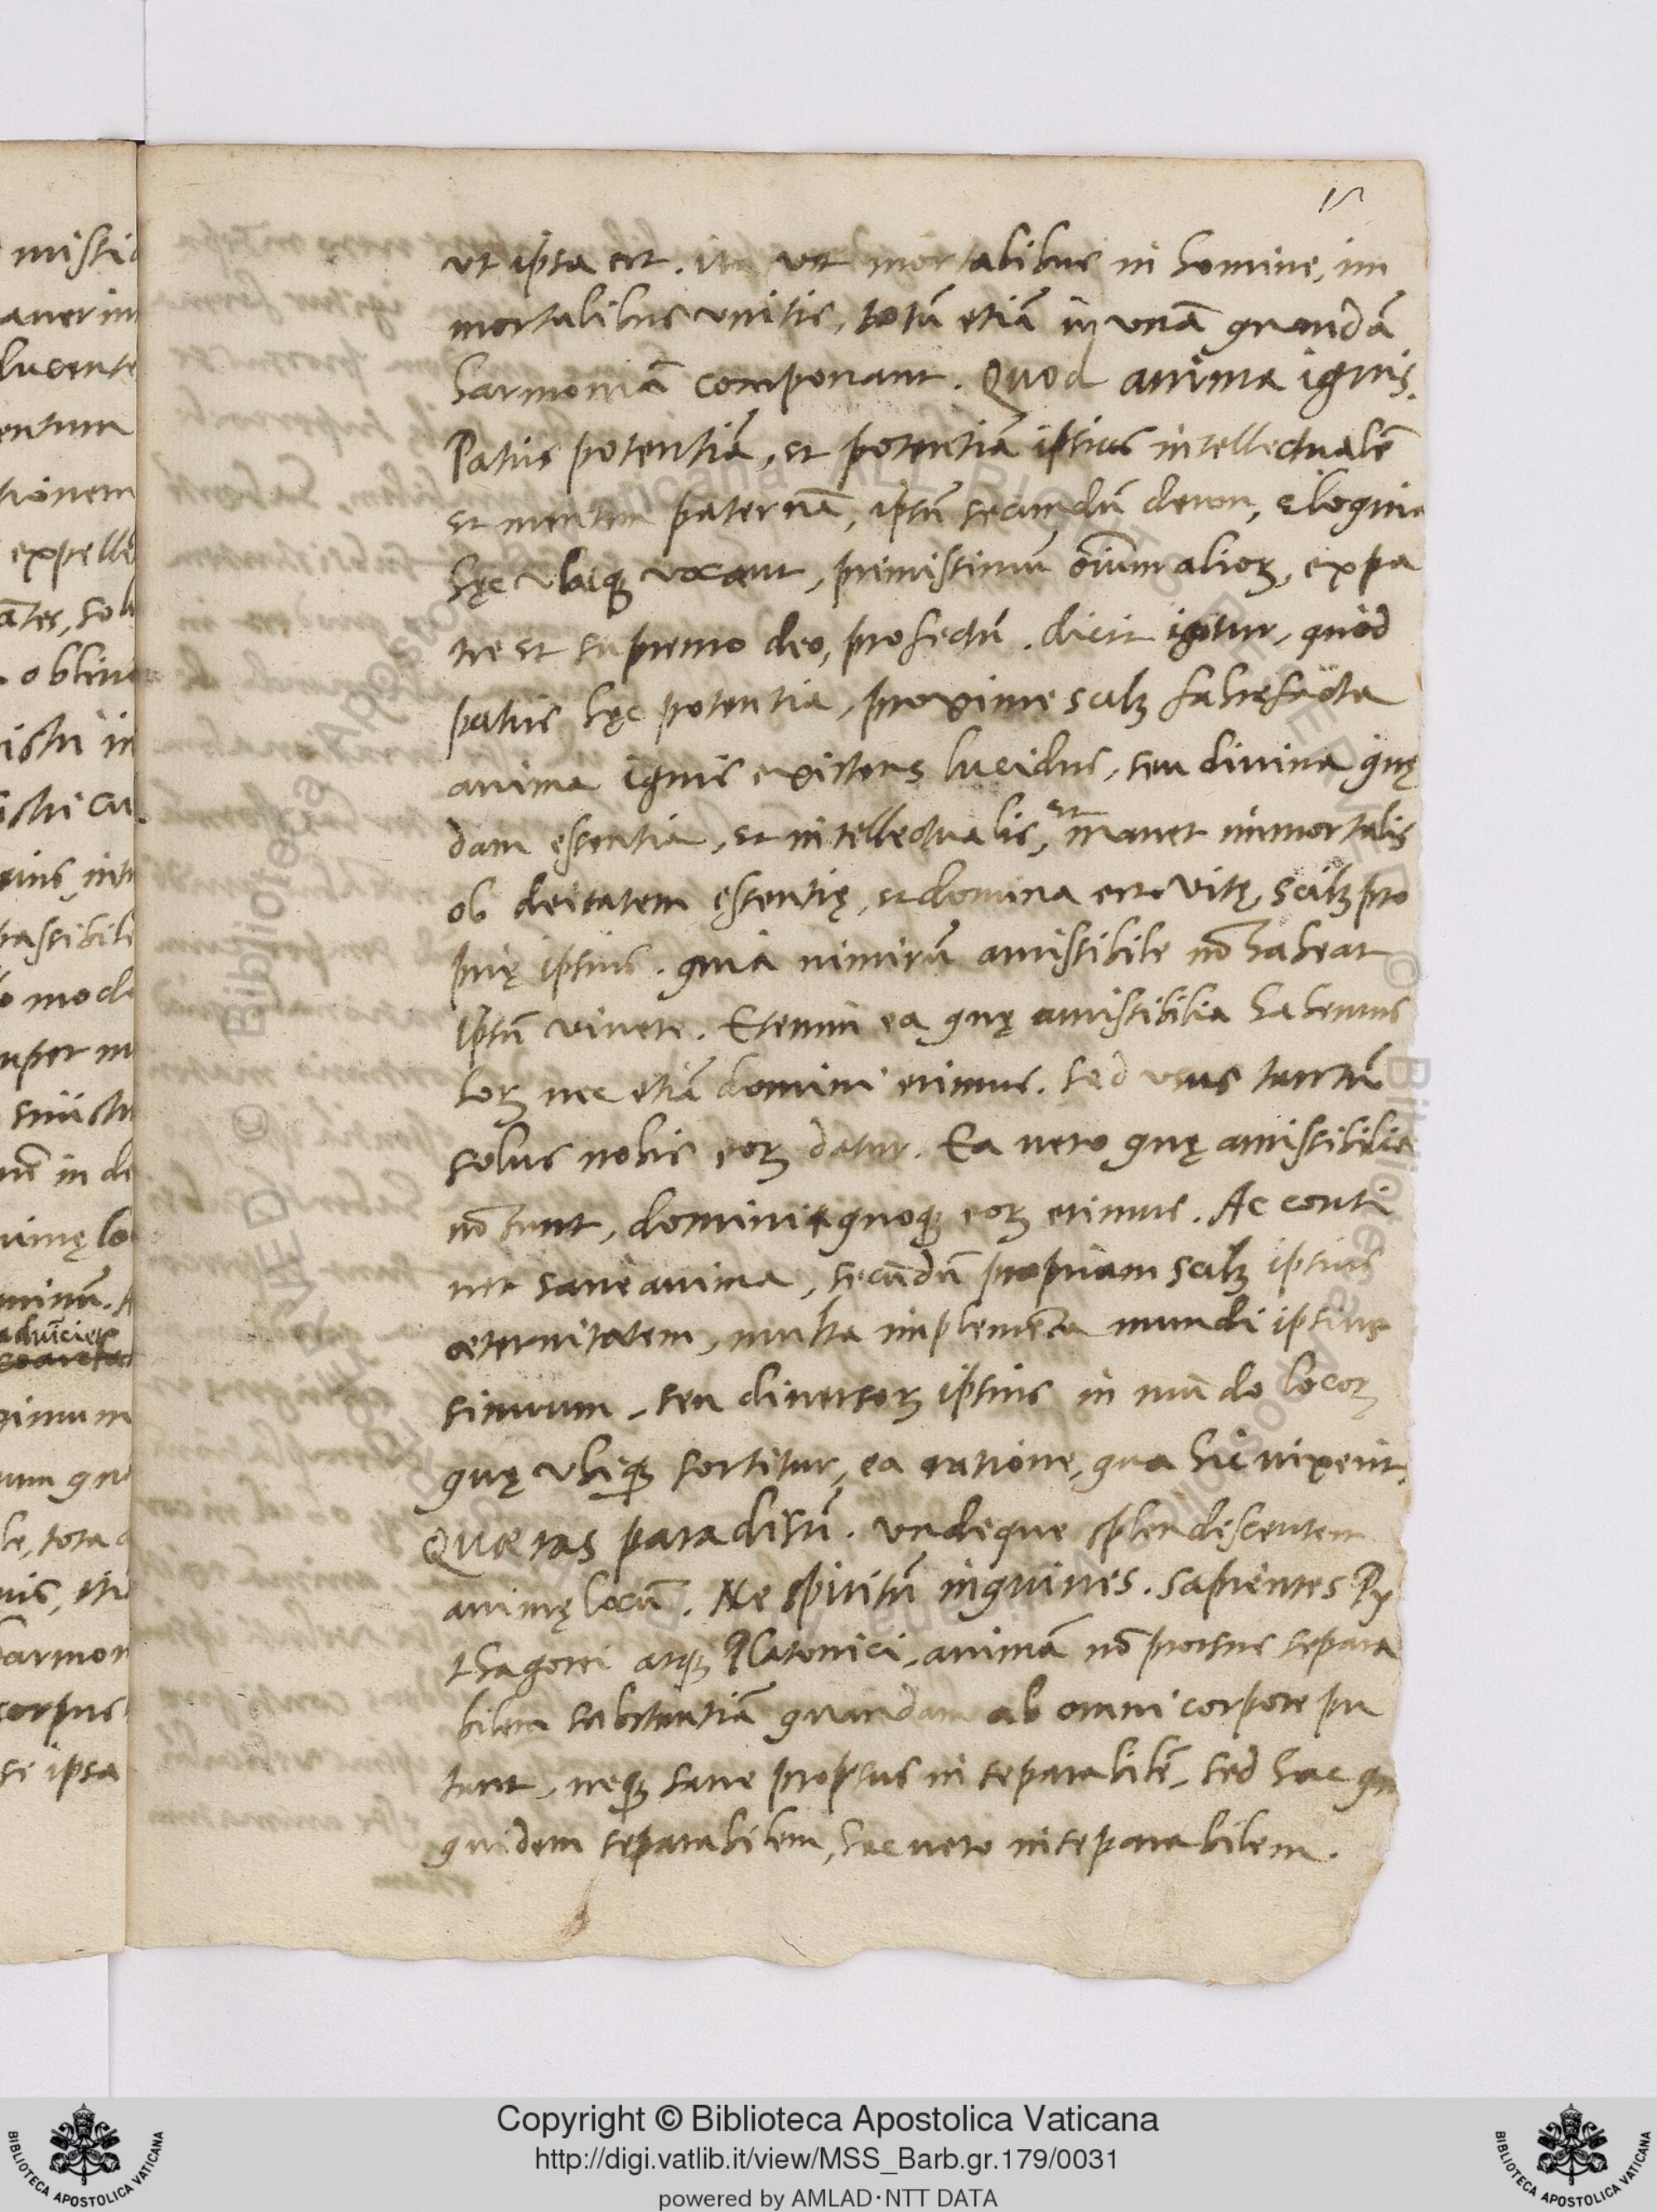 15
ut ipsa est. ita ut mortalibus in homine, im
mortalibus unitis, totũ etiã in unã quandã
harmoniã componant. Quod anima ignis.
Patris potentiã, et potentiã ipsius intellectualẽ
et mentem paternã, ipsũ secundũ deum, eloquia
hęc ubiqꝫ vocant, primissimũ oĩum alioꝝ, ex pa
tre et supremo deo, profectũ. dicit igitur, quod
patris hęc potentia, proxime scilꝫ fabrefacta
anima ignis existens lucidus, seu divina quę
dam essentia, et intellectualis, et manet immortalis
ob deitatem essentię, et domina est vitę, scilꝫ pro
prię ipsius. quia nimirũ amissibile nõ habeat
ipsũ vivere. Etenim ea quę amissibilia habemus
hoꝝ nec etiã domini erimus. sed usus tantũ
solus nobis eoꝝ datur. Ea vero quę amissibilia
nõ sunt, domini quoqꝫ eoꝝ erimus. Ac conti
net sane anima, secũdũ propriam scilꝫ ipsius
æternitatem, multa implemẽta mundi ipsius
sinuum, seu diversoꝝ ipsius in mũdo locoꝝ
quę ubiqꝫ sortitur, ea ratione, qua hic vixerit.
Quæras paradisũ. undeque splendescentem
animę locũ. Ne spiritũ inquines. sapientes Py
thagorei atqꝫ Platonici, animã nõ prorsus separa
bilem substantiã quandam ab omni corpore pu
tant, neqꝫ sane prorsus inseparabilẽ, sed hac
quidem separabilem, hac vero inseparabilem.
© Biblioteca Apostolica Vaticana ALL RIGHTS RESERVED
Copyright © Biblioteca Apostolica Vaticana
http://digi.vatlib.it/view/MSS_Barb.gr.179/0031
powered by AMLAD·NTT DATA
BIBLIOTECA APOSTOLICA VATICANA
BIBLIOTECA APOSTOLICA VATICANA